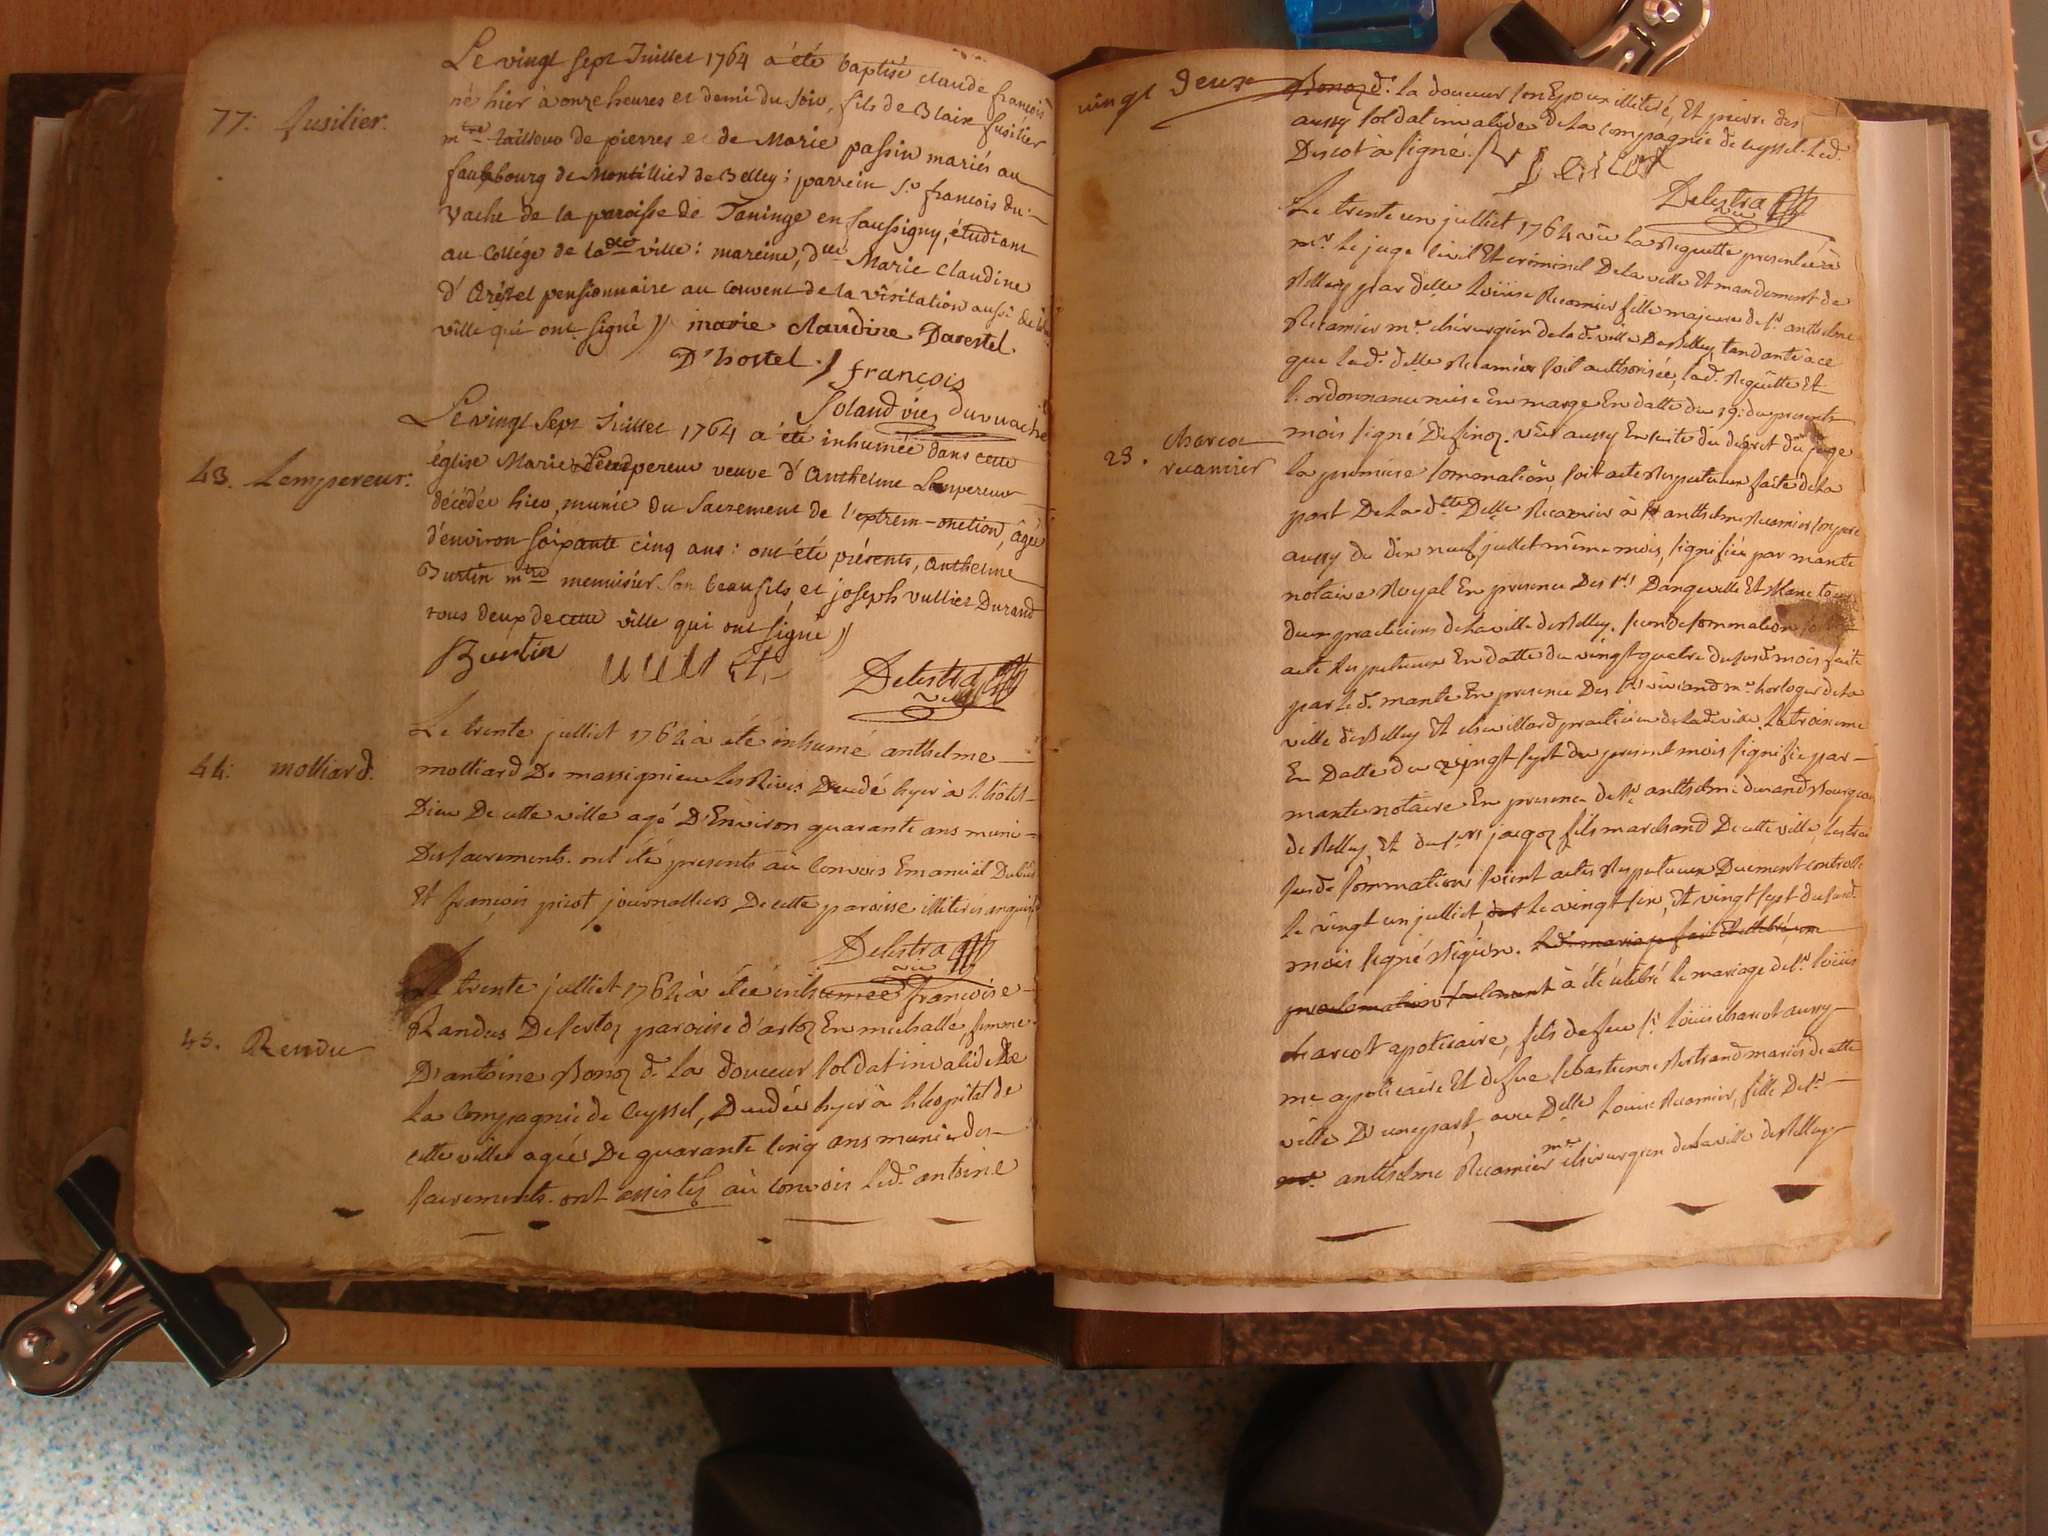 Le vingt sept Juillet 1764 a été baptisé claude françois
77: fusilier. né hier à onze heures et demi du soir, fils de Blaise fusilier
mtre tailleur de pierres et de Marie passin mariés au
fauxbourg de Montillier de Belley; parrein Sr françois du-
vache de la paroisse de Taninge en faussigny, étudiant
au Collége de ladte ville: mareine, dlle Marie Claudine
d'Arestel pensionnaire au Couvent de la visitation aussi de
ville qui ont signé // marie claudine Darestel
D'hostel. / françois
Soland vic. duvuache
Le vingt sept Juillet 1764 a été inhumée dans cette
43. Lempereur. église Marie Lempereur veuve d'Anthelme Lempereur
décédée hier, munie du Sacrement de l'extrem-onction, âgée
d'environ soixante cinq ans: ont été présents, anthelme
Burtin mtre menuisier son beau fils et joseph vulliet Durand
tous deux de cette ville qui ont signé //
Burtin vulliet
Delestra
vic
Le trente julliet 1764 à été inhumé anthelme
44: molliard. molliard De massignieu les Rives Decedé hyer à l'hôtel-
Dieu De cette ville agé D'Environ quarante ans muni
Des sacrements. ont été presents au Convois Emanuel
Et françois picot journalliers De cette paroisse illiterés enquis
Delestra
vic
Le trente julliet 1764 à étée inhumée françoise
45. Rendu Randus De paroisse d'artoz En michallie, femme
D'antoine Bonoz d. la douceur soldat invalide De
la Compagnie de Ceyssel, Decedée hyer à l'hopital de
cette ville agée De quarante cinq ans munie des
sacrements. ont assistez au convois led. antoine
vingt deux Bonoz d. la douceur son Epoux illiteré, Et pierre des
aussy soldat invalide de la compagnie de Ceyssel. led.
Descot à signé. /
Descot
Delestra
vic
Le trente un julliet 1764 vû la Requette presentée à
mr. le juge Civil Et criminel De la ville Et mandement de
Belley par delle Loüise Recamier fille majeure de sr. anthelme
Recamier mr. chirurgien de lad. ville De Belley, tendante à ce
que lad. delle Recamier soit authorisée, lad. Requêtte Et
l'ordonnance mise En marge En datte du 19: du present
23. charcot
recamier
mois signé Definoz. vû aussy En suite du decret du juge
la premiere sommation, soit acte Respectueux faite de la
part De la dtte Delle Recamier à sr anthelme Recamier son pere
aussy du dix neuf julliet même mois, signifiée par mante
notaire Royal En presence Des srs Dangeville Et
deux praticiens de la ville de Belley. seconde sommation
acte Respectueux En datte du vingt quatre du susd. mois faite
par led. mante En presence Des srs mr horloger de la
ville de Belley Et chevillard praticien de lad. ville. La troisieme
En Datte du vingt sept du present mois signifié par
mante notaire En presence de sr. anthelme durand Bourgeois
de Belley, Et du sr jacquoz fils marchand De cette ville, les trois
susd. sommations soient actes Respectueux Duement controllé
le vingt un julliet, le vingt six, Et vingt sept du susd.
mois signé Niguon. Led. mariage fait Et celebré, une
proclamation seulement à été célébré le mariage de sr. loüis
charcot apoticaire, fils de feu sr. loüis charcot aussy
me apoticaire Et de feue sebastienne Bertrand mariés de cette
ville D'une part, avec Delle Louise Recamier, fille De sr.
mr. anthelme Recamier mr. chirurgien de la ville de Belley